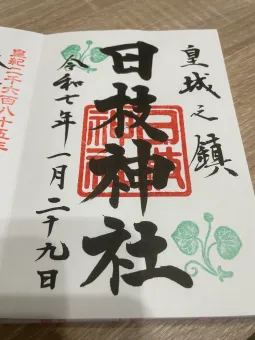 皇城之鎮
日枝神社
日枝神社
令和七年一月二十九日
皇紀二千六百八十五年